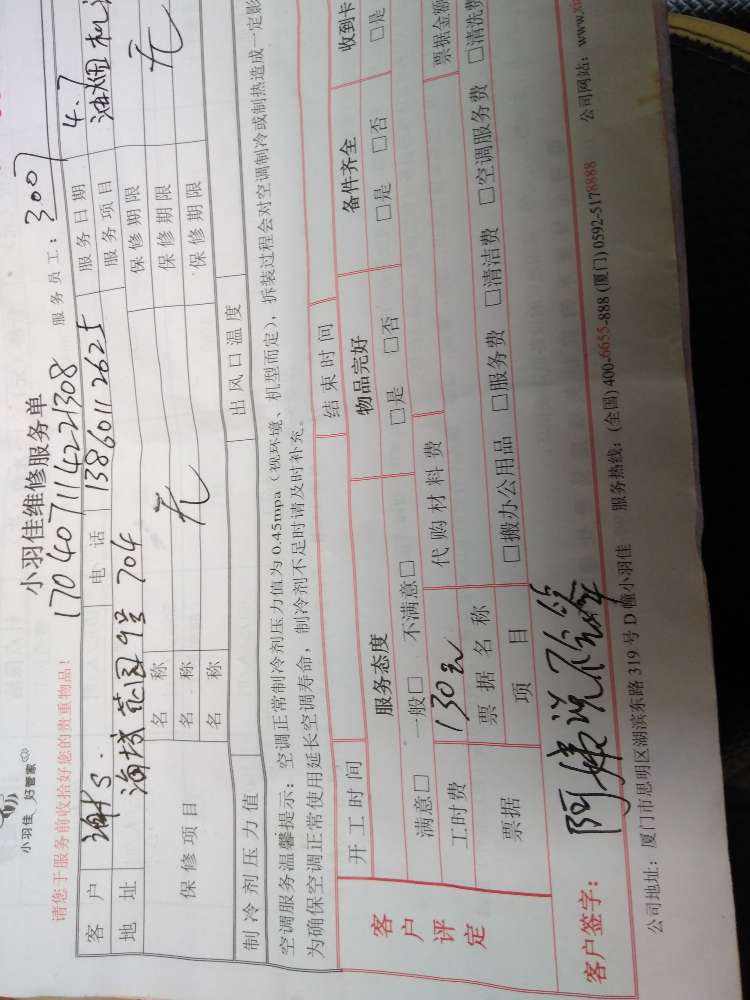 小羽佳 好管家
小羽佳维修服务单
请您于服务前收拾好您的贵重物品！
170407114221308 服务员工：3007
客户 谢S. 电话 13860112625 服务日期 4.7
地址 海城花园9号704 服务项目 油烟机
保修项目 名称 保修期限 无
名称 无 保修期限
名称 保修期限
制冷剂压力值 出风口温度
空调服务温馨提示：空调正常制冷剂压力值为0.45mpa（视环境、机型而定），拆装过程会对空调制冷或制热造成一定影
为确保空调正常使用延长空调寿命，制冷剂不足时请及时补充。
开工时间 结束时间
客户评定 服务态度 物品完好 备件齐全 收到卡
满意□ 一般□ 不满意□ □是 □否 □是 □否 □是
工时费 130元 代购材料费 票据金额
票据 票据名称
项目 □搬办公用品 □服务费 □清洁费 □空调服务费 □清洗费
客户签字： 阿姨说不会签
公司地址：厦门市思明区湖滨东路319号D幢小羽佳 服务热线：(全国)400-6655-888 (厦门)0592-5178888 公司网站：www.xi